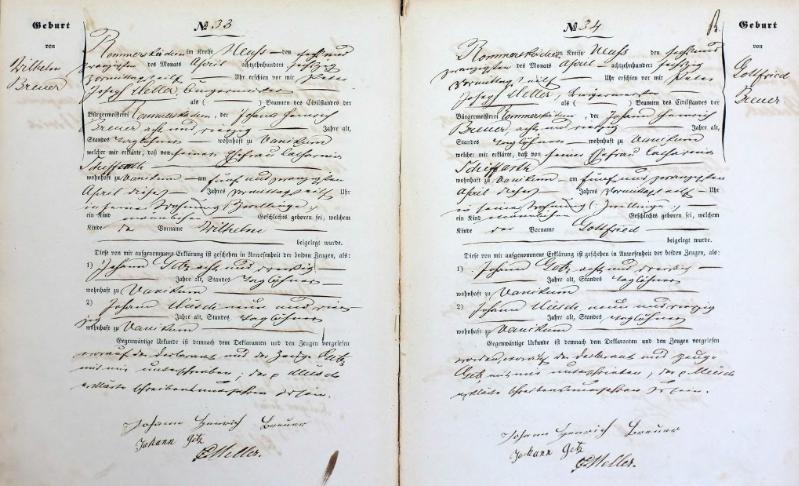 Geburt
von
Wilhelm
Breuer
№ 33
Rommerskirchen im Kreise Neuß den sechsund
zwanzigsten des Monats April achtzehnhundert sechszig
Vormittag elf Uhr erschien vor mir Peter
Joseph Heller, Bürgermeister
als ( ) Beamten des Civilstandes der
Bürgermeisterei Rommerskirchen, der Johann Heinrich
Breuer acht und vierzig Jahre alt,
Standes Taglöhner wohnhaft zu Vanikum
welcher mir erklärte, daß von seiner Ehefrau Catharina
Schiffarth
wohnhaft zu Vanikum am fünf und zwanzigsten
April dieses Jahres Vormittags elf Uhr
in seiner Wohnung (Zwillinge)
ein Kind männlichen Geschlechts geboren sei, welchem
Kinde der Vorname Wilhelm
beigelegt wurde.
Diese von mir aufgenommene Erklärung ist geschehen in Anwesenheit der beiden Zeugen, als:
1) Johann Getz acht und dreißig
Jahre alt, Standes Taglöhner
wohnhaft zu Vanikum
2) Johann neun und vier
zig Jahre alt, Standes Taglöhner
wohnhaft zu Vanikum
Gegenwärtige Urkunde ist demnach dem Deklaranten und den Zeugen vorgelesen
worauf der Declarant und der Zeuge Getz
mit mir unterschrieben; der p
erklärte Schreibensunerfahren zu sein.
Johann Heinrich Breuer
Johann Getz
Heller.
№ 34
Geburt
von
Gottfried
Breuer
Rommerskirchen im Kreise Neuß den sechsund
zwanzigsten des Monats April achtzehnhundert sechszig
Vormittag elf Uhr erschien vor mir Peter
Joseph Heller, Bürgermeister
als ( ) Beamten des Civilstandes der
Bürgermeisterei Rommerskirchen, der Johann Heinrich
Breuer, acht und vierzig Jahre alt,
Standes Taglöhner wohnhaft zu Vanikum
welcher mir erklärte, daß von seiner Ehefrau Catharina
Schiffarth
wohnhaft zu Vanikum am fünf und zwanzigsten
April dieses Jahres Vormittags elf Uhr
in seiner Wohnung (Zwillinge)
ein Kind männlichen Geschlechts geboren sei, welchem
Kinde der Vorname Gottfried
beigelegt wurde.
Diese von mir aufgenommene Erklärung ist geschehen in Anwesenheit der beiden Zeugen, als:
1) Johann Getz acht und dreißig
Jahre alt, Standes Taglöhner
wohnhaft zu Vanikum
2) Johann neun und vierzig
Jahre alt, Standes Taglöhner
wohnhaft zu Vanikum
Gegenwärtige Urkunde ist demnach dem Deklaranten und den Zeugen vorgelesen
worden, worauf der Declarant und Zeuge
Getz mit mir unterschrieben, der p
erklärte Schreibensunerfahren zu sein.
Johann Heinrich Breuer
Johann Getz
Heller.